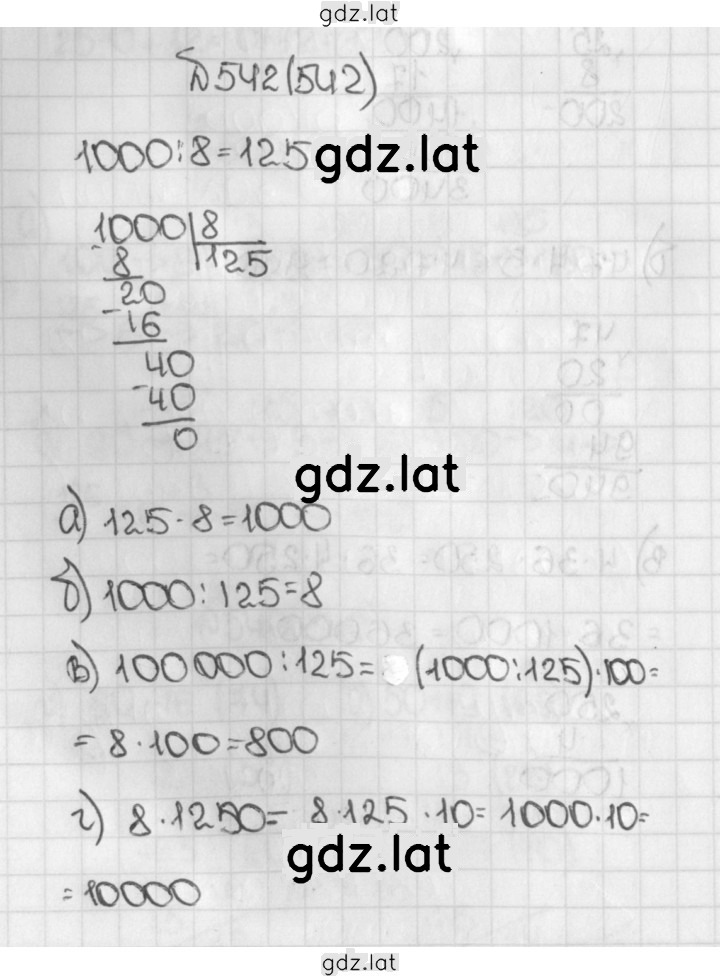 gdz.lat
542(542)
1000:8=125 gdz.lat
1000 8
- 8 125
20
- 16
40
- 40
0
gdz.lat
а) 125·8=1000
б) 1000:125=8
в) 100000:125= (1000:125)·100=
= 8·100=800
г) 8·1250= 8·125·10= 1000·10=
gdz.lat
= 10000
gdz.lat